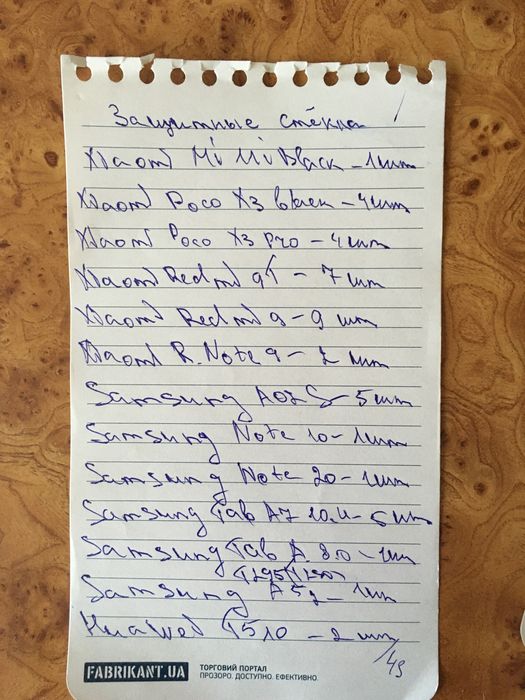 Защитные стёкла
Xiaomi Mi 11i Black - 1шт
Xiaomi Poco X3 black - 4шт
Xiaomi Poco X3 Pro - 4шт
Xiaomi Redmi 9T - 7 шт
Xiaomi Redmi 9 - 9 шт
Xiaomi R. Note 9 - 2 шт
Samsung A02S - 5шт
Samsung Note 10 - 1шт
Samsung Note 20 - 1шт
Samsung Tab A7 10.4 - 5 шт
Samsung Tab A 8.0 - 1шт
T295/T290
Samsung A52 - 1шт
Huawei T5 10 - 2 шт
/43
FABRIKANT.UA
ТОРГОВИЙ ПОРТАЛ
ПРОЗОРО. ДОСТУПНО. ЕФЕКТИВНО.